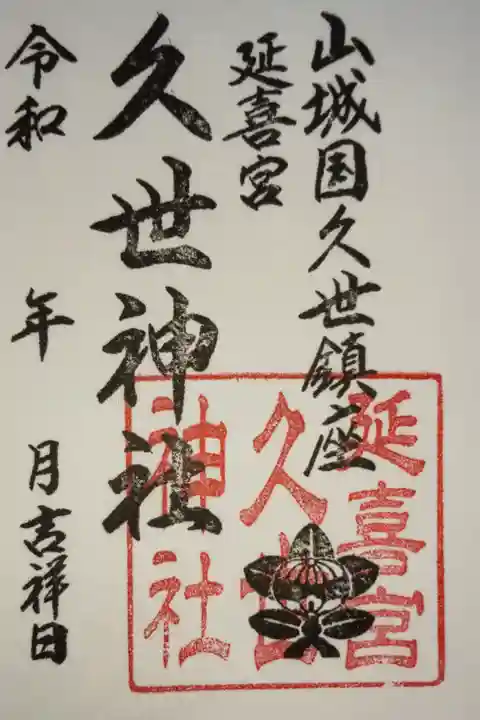 山城国久世鎮座
延喜宮
久世神社
令和　年　月吉祥日
延喜宮
久世
神社